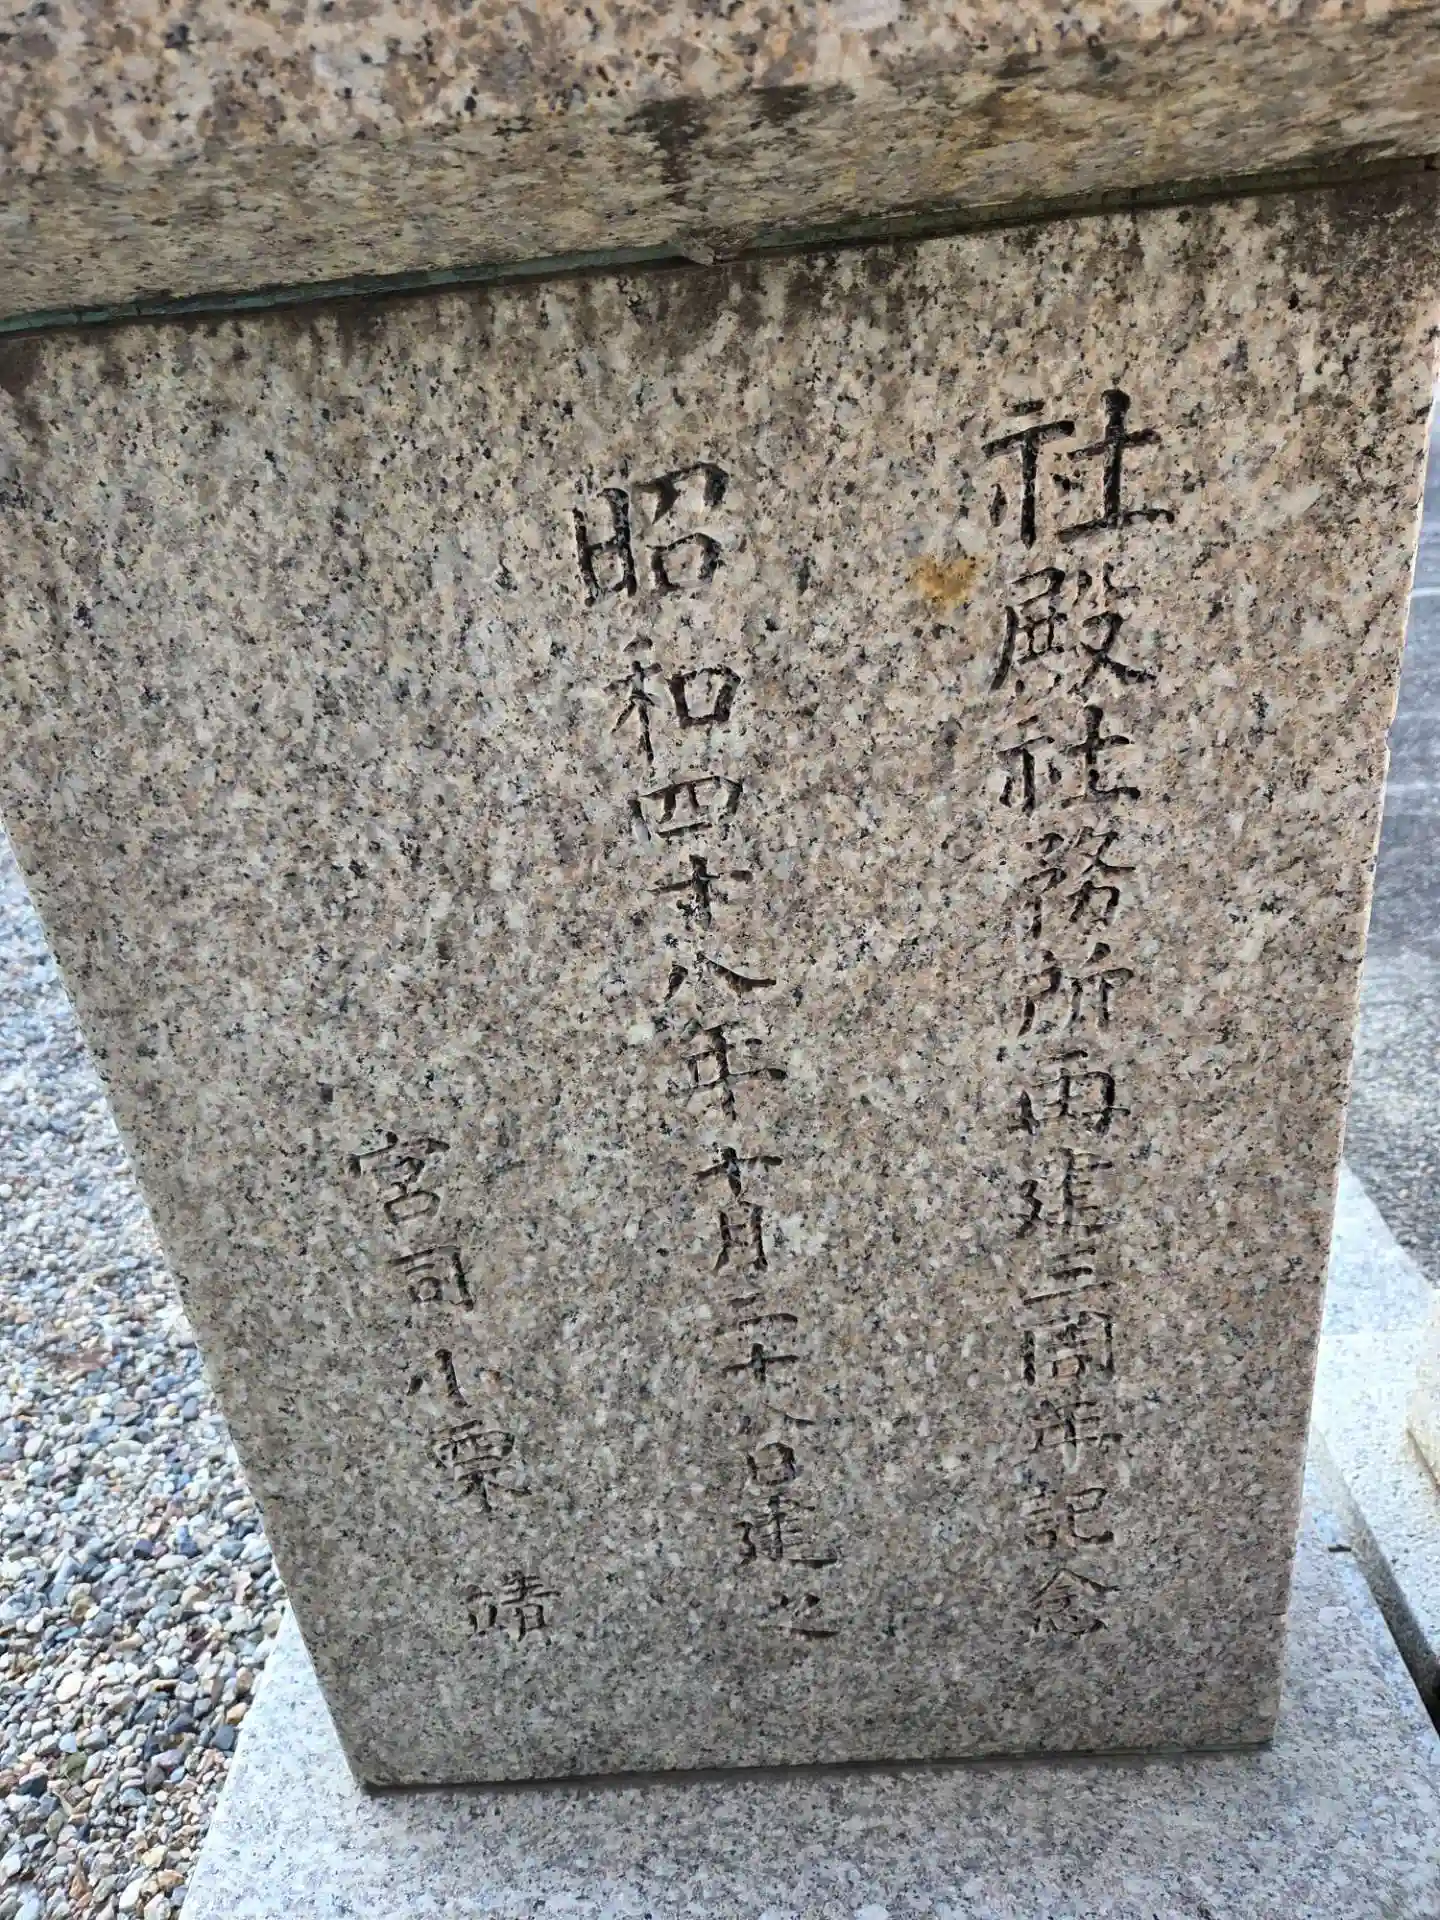 社殿社務所再建三箇年記念
昭和四十八年十月二十八日建之
宮司小栗靖